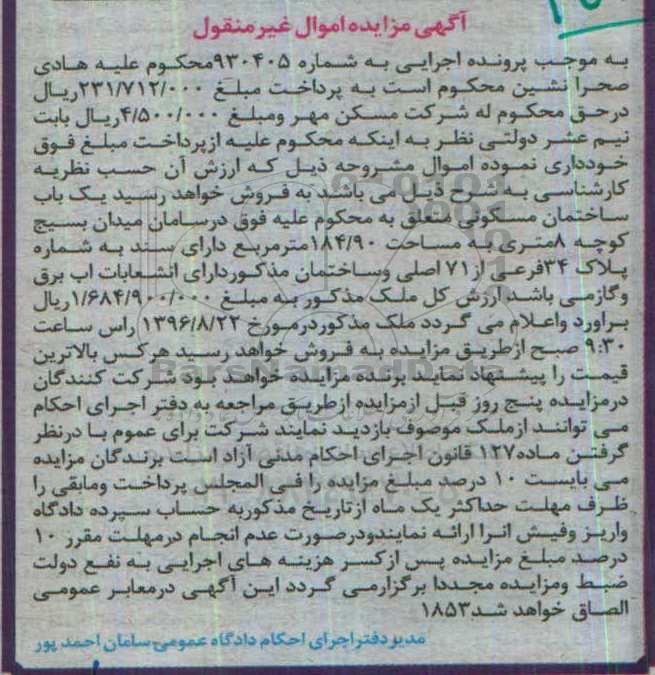 آگهی مزایده اموال غیر منقول
به موجب پرونده اجرایی به شماره ۹۳۰۴۰۵محکوم علیه هادی
صحرا نشین محکوم است به پرداخت مبلغ ۲۳۱/۷۱۲/۰۰۰ریال
درحق محکوم له شرکت مسکن مهر ومبلغ ۴/۵۰۰/۰۰۰ریال بابت
نیم عشر دولتی نظر به اینکه محکوم علیه ازپرداخت مبلغ فوق
خودداری نموده اموال مشروحه ذیل که ارزش آن حسب نظریه
کارشناسی به شرح ذیل می باشد به فروش خواهد رسید یک باب
ساختمان مسکونی متعلق به محکوم علیه فوق درسامان میدان بسیج
کوچه ۸متری به مساحت ۱۸۴/۹۰مترمربع دارای سند به شماره
پلاک ۳۴فرعی از ۷۱ اصلی وساختمان مذکوردارای انشعابات اب برق
وگازمی باشد ارزش کل ملک مذکور به مبلغ ۱/۶۸۴/۹۰۰/۰۰۰ریال
براورد واعلام می گردد ملک مذکوردرمورخ ۱۳۹۶/۸/۲۲ راس ساعت
۹:۳۰ صبح ازطریق مزایده به فروش خواهد رسید هرکس بالاترین
قیمت را پیشنهاد نماید برنده مزایده خواهد بود شرکت کنندگان
درمزایده پنج روز قبل ازمزایده ازطریق مراجعه به دفتر اجرای احکام
می توانند ازملک موصوف بازدید نمایند شرکت برای عموم با درنظر
گرفتن ماده۱۲۷ قانون اجرای احکام مدنی آزاد است برندگان مزایده
می بایست ۱۰ درصد مبلغ مزایده را فی المجلس پرداخت ومابقی را
ظرف مهلت حداکثر یک ماه ازتاریخ مذکوربه حساب سپرده دادگاه
واریز وفیش انرا ارائه نمایندودرصورت عدم انجام درمهلت مقرر ۱۰
درصد مبلغ مزایده پس ازکسر هزینه های اجرایی به نفع دولت
ضبط ومزایده مجددا برگزارمی گردد این آگهی درمعابر عمومی
الصاق خواهد شد۱۸۵۳
مدیردفتراجرای احکام دادگاه عمومی-سامان احمد پور
ParsNamadData